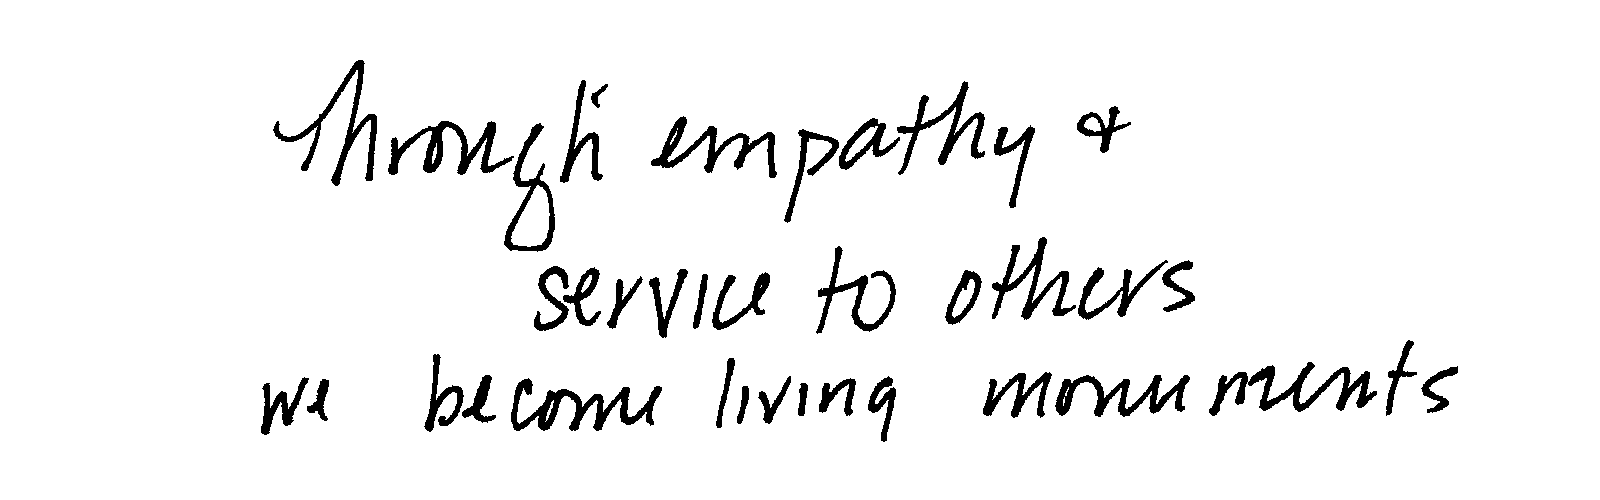 Through empathy &
service to others
we become living monuments